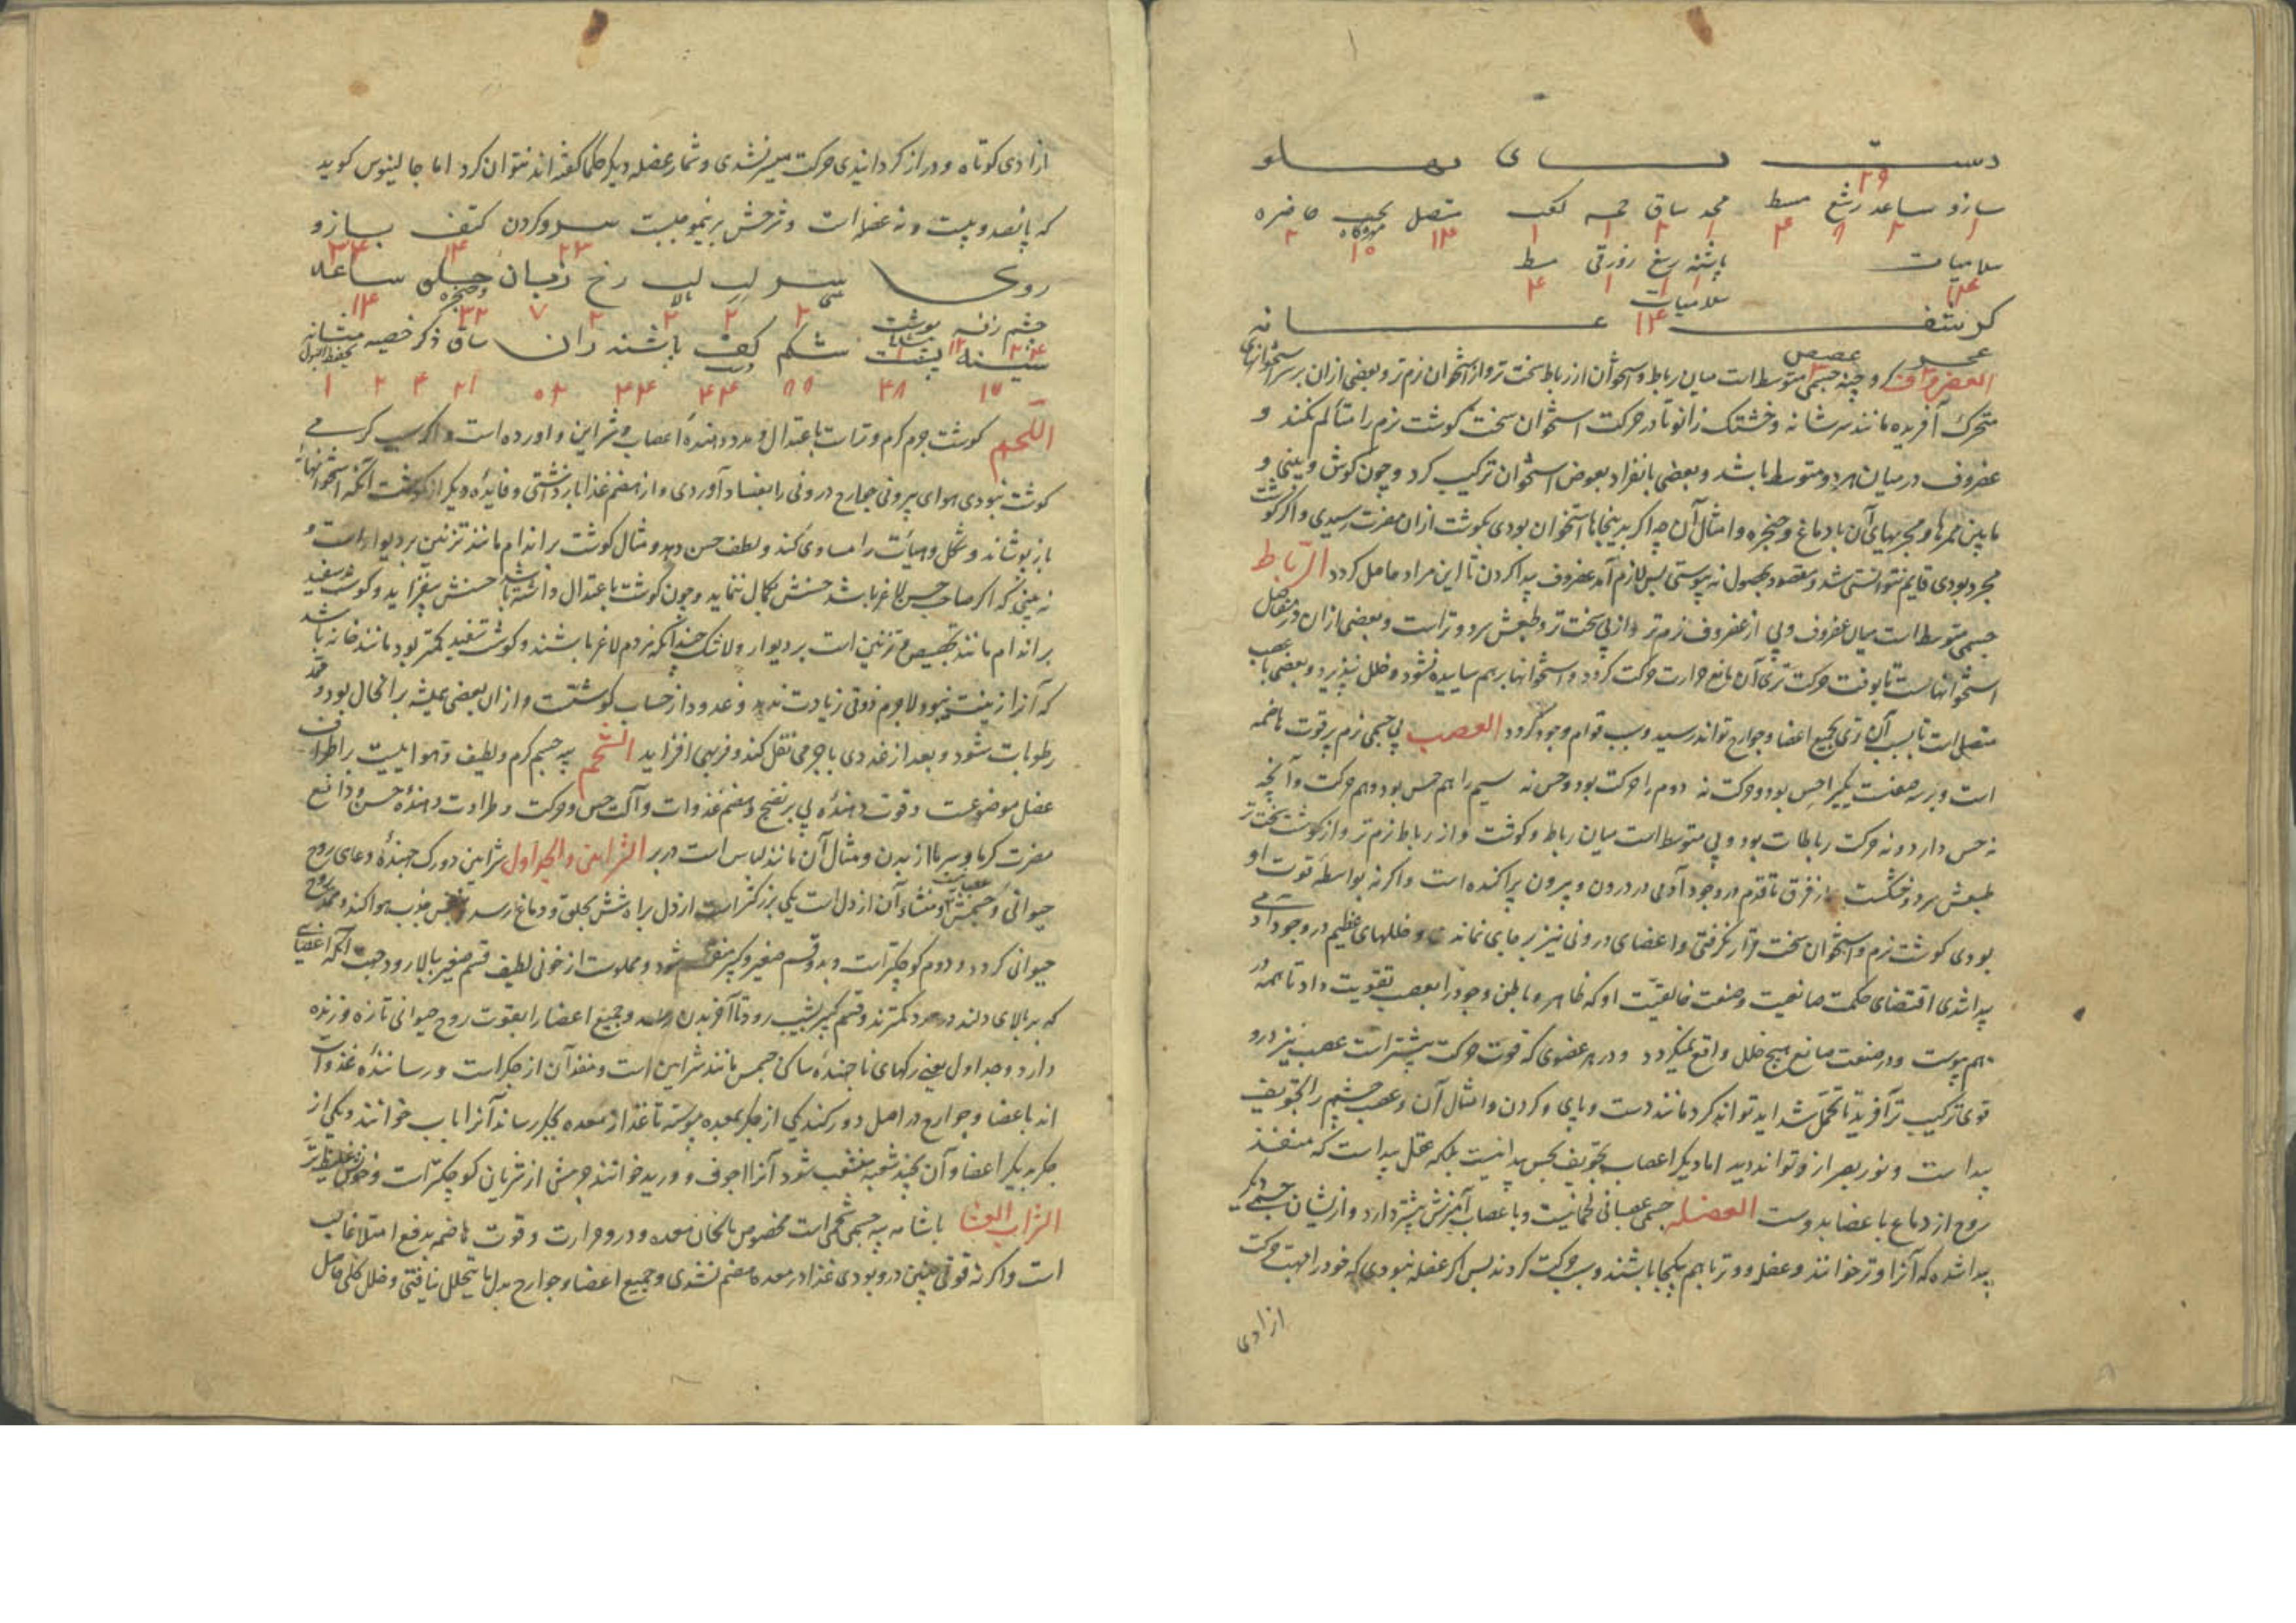 دست پای پهلو
بازو ساعد رسغ مسط فخذ ساق کعب متصل بجنب خاصره
۲۹
۱ ۲ ۸ ۴ ۱ ۲ ۱ ۱ ۱۴ ۱۰ ۲
سلامیات پاشنه رسغ زورقی مسط
۴
سلامیات
۱۴
کتف عانه
عجز عصعص
الغضروف کروچنه جسمی متوسط است میان رباط و استخوان از رباط سخت تر و از استخوان نرم تر و بعضی ازان بر سر استخوانهای
متحرک آفریده مانند سر شانه و خشتک زانو تا در حرکت استخوان سخت گوشت نرم را متألم نکند و
غضروف در میان هر دو متوسط باشد و بعضی بانفراد بعوض استخوان ترکیب کرد و چون گوش و بینی و
مابین ممرها و مجریهای آن با دماغ و حنجره و امثال آن چه اگر بدینجاها استخوان بودی بگوشت ازان مضرت رسیدی و اگر گوشت
مجرد بودی قایم نتوانستی شد و مقصود بحصول نه پیوستی پس لازم آمد غضروف پیدا کردن تا این مراد حاصل گردد الرباط
جسمی متوسط است میان غضروف و پی از غضروف نرم تر و از پی سخت تر و طبعش سرد و تر است و بعضی ازان در مفاصل
استخوانهاست تا بوقت حرکت تری آن مانع حرارت حرکت گردد و استخوانها برهم ساییده نشود و خلل نپذیرد و بعضی باعصب
متصل است تا بسبب آن تری بجمیع اعضا و جوارح تواند رسید و سبب قوام وجود گردد العصب پی جسمی نرم پر قوت هاضمه
است و بر سه صفت یکیرا حس بود و حرکت نه دوم را حرکت بود و حس نه سیم را هم حس بود و هم حرکت و آنچه
نه حس دارد و نه حرکت رباطات بود و پی متوسط است میان رباط و گوشت و از رباط نرم تر و از گوشت سخت تر
طبعش سرد و خشکست از فرق تا قدم در وجود آدمی در درون و بیرون پراکنده است و اگر نه بواسطه قوت او
بودی گوشت نرم و استخوان سخت قرار نگرفتی و اعضای درونی نیز بر جای نماندی و خللهای عظیم در وجود آدمی
پیدا شدی اقتضای حکمت صانعیت و صنعت خالقیت او که ظاهر و باطن وجود را بعصب تقویت داد تا همه در
بهم پیوست و در صنعت صانع هیچ خلل واقع نمیگردد و در هر عضوی که قوت حرکت بیشتر است عصب نیز درو
قوی ترکیب تر آفرید تا تحمل شداید تواند کرد مانند دست و پای و گردن و امثال آن و عصب چشم را تجویف
پیدا است و نور بصر از و تواند دید اما دیگر اعصاب تجویف بحس پیدا نیست بلکه عقل پیدا است که منفذ
روح از دماغ باعضا بدوست العضله جسمی عصبانی لحمانیست و با عصاب آمیزش بیشتر دارد و از ایشان جسمی دیگر
پیدا شده که آنرا وتر خوانند و عضل و وتر با هم یکجا باشند و سبب حرکت گردند پس اگر عضله نبودی که خود را بجهت حرکت
ازادی
ازادی کوتاه و دراز گردانیدی حرکت میسر نشدی و شمار عضله دیگر حکما گفته اند نتوان کرد اما جالینوس گوید
که پانصد و بیست و نه عضله است و شرحش برینموجبست سر و گردن کتف بازو
۲۳ ۱۴ ۳۴
روی سر لب لب رخ زبان حلق و حنجره ساعد
بالا
۲ ۲ ۲ ۲ ۷ ۳۲ ۱۴
چشم پوست
سینه پشت شکم کف پاشنه ران ساق ذکر خصیه مثانه
بحفظ البول
۴۸ ۸۸ ۴۴ ۴۴ ۵۲ ۲۱ ۴ ۲ ۱
اللحم گوشت جرم گرم و تر است باعتدال و مدد دهنده اعصاب و شراین و اورده است و اگر سبب گرمی
گوشت نبودی هوای بیرونی جوارح درونی را بفساد آوردی و از هضم غذا باز داشتی و فایده دیگر از گوشت آنکه استخوانها
باز پوشاند و شکل و هیأت را مساوی کند و لطف حسن دهد و مثال گوشت بر اندام مانند تزیین بر دیوار است و
نه بینی که اگر صاحب حسن لاغر باشد حسنش کمال ننماید و چون گوشت باعتدال داشته باشد حسنش بیفزاید و گوشت سفید
بر اندام مانند تجصیص و تزیین است بر دیوار ولا شک چندانکه مردم لاغر باشند و گوشت سفید کمتر بود مانند خانه باشد
که آنرا زینت نبود لاجرم ذوقی زیادت ندهد و غدود از حساب گوشتست و ازان بعضی همیشه بر انحال بود و ممد
رطوبات شود و بعد از غددی باجرمی نقل کند و فربهی افزاید الشحم پیه جسم گرم و لطیف و هواییست بر اطراف
عضل موضوعست و قوت دهنده پی بر نضج و هضم غذوات و آلت حس و حرکت و طراوت دهنده حسن و دافع
مضرت گرما و سرما از بدن و مثال آن مانند لباس است در بر الشراین و الجداول شراین دو رگ جهنده وعای روح
حیوانی و جسمش و منشاء آن از دل است یکی بزرگتر است از دل براه شش بحلق و دماغ رسد نفس جذب هوا کند و ممد روح
حیوانی گردد و دوم کوچکتر است و بدو قسم صغیر و کبیر منقسم شود و مملوست از خونی لطیف قسم صغیر بالا رود جهت آنکه اعضایی
که بر بالای دلند در عدد کمترند و قسم کبیر بشیب رود تا آفریدن و جمیع اعضا را بقوت روح حیوانی تازه و زنده
دارد و جداول یعنی رگهای ناجهنده ساکن جسمش مانند شراین است و منفذ آن از جگر است و رساننده غذوات
اند باعضا و جوارح در اصل دو رگند یکی از جگر بمعده پیوسته تا غذا از معده بجگر رساند آنرا باب خوانند و یکی از
جگر بدیگر اعضا و آن بچند شعبه منشعب شود آنرا اجوف و ورید خوانند جرمش از شریان کوچکتر است و خونش غلیظ تر
الثرب الغشا پیه جسمی شحمی است مخصوص معده و درو حرارت و قوت هاضمه بدفع امتلا غالب
است و اگر نه قوتی چنین درو بودی غذا در معده هضم نشدی و جمیع اعضا و جوارح بدل ما یتحلل نیافتی و خلل کلی حاصل